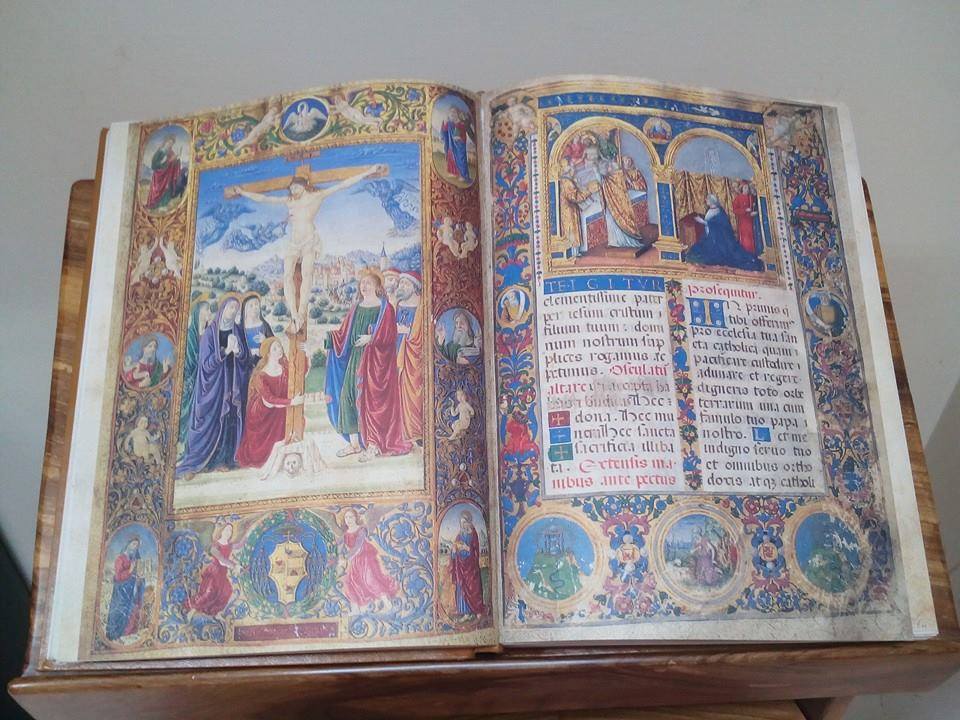 TE·IGITVR
clementissime pater
per iesum cristum
filium tuum: domi
num nostrum sup
plices rogamus ac
petimus. Osculatur
altare accepta ha
Hec
dona. Hec mu
nera Hec sancta
sacrificia illiba
ta. Extensis ma
nibus ante pectus
prosequitur.
IN primis q
tibi offerimus
pro ecclesia tua san
cta catholica quam
pacificare custodire
adunare et regere
digneris toto orbe
terrarum una cum
famulo tuo papa
nostro. Et me
indigno servo tuo
et omnibus ortho
doxis atqz catholi